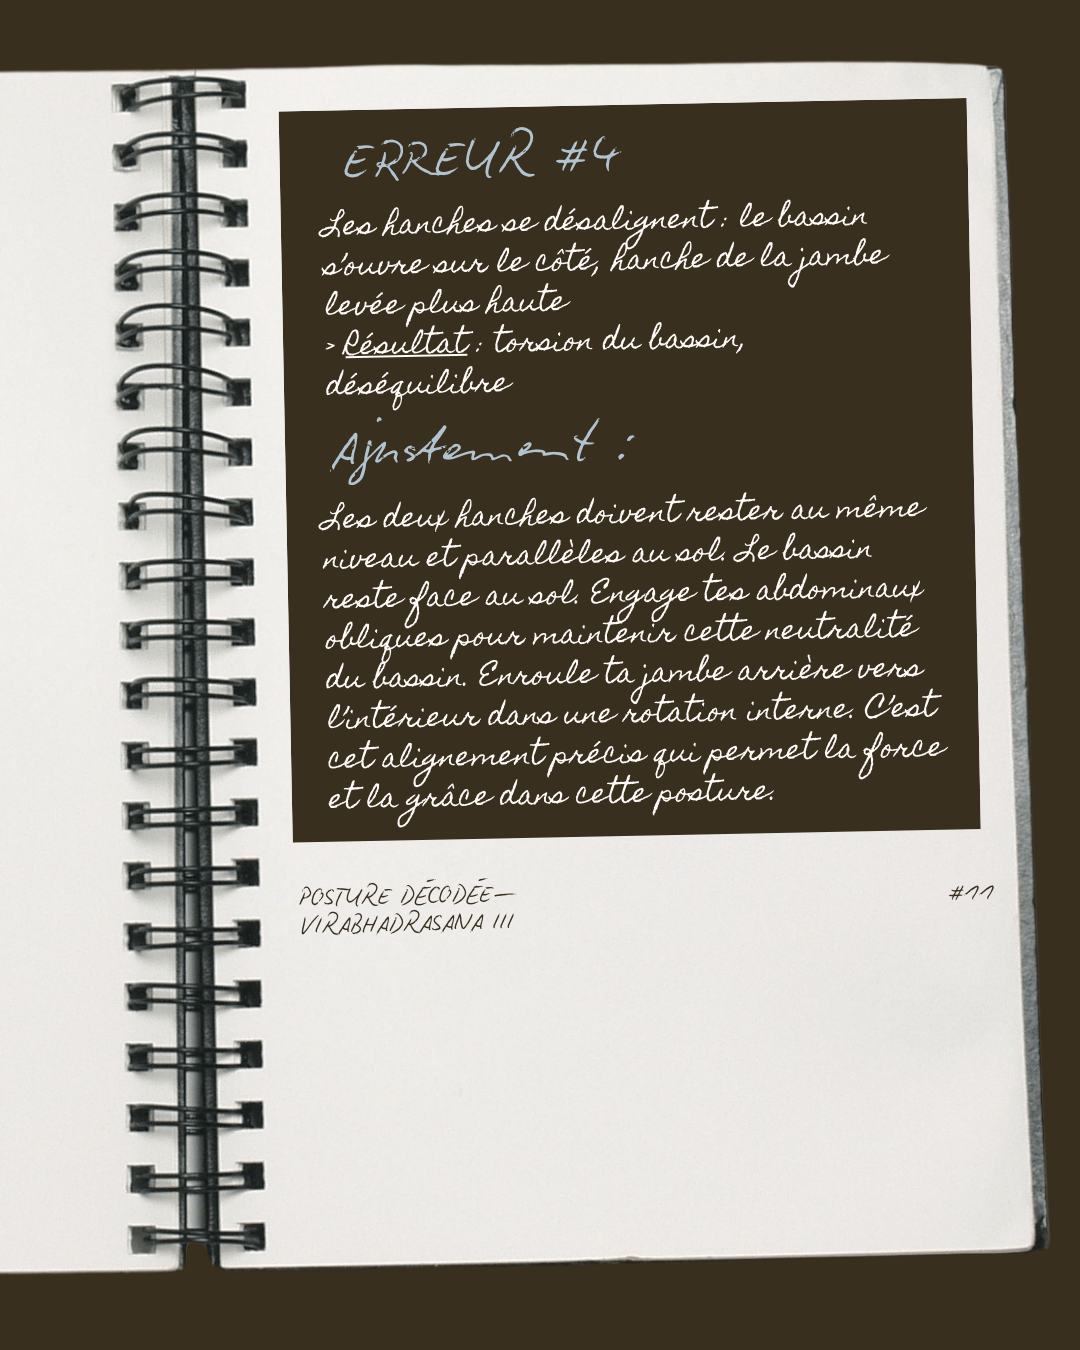 ERREUR #4
Les hanches se désalignent : le bassin
s'ouvre sur le côté, hanche de la jambe
levée plus haute
> Résultat : torsion du bassin,
déséquilibre
Ajustement :
Les deux hanches doivent rester au même
niveau et parallèles au sol. Le bassin
reste face au sol. Engage tes abdominaux
obliques pour maintenir cette neutralité
du bassin. Enroule ta jambe arrière vers
l'intérieur dans une rotation interne. C'est
cet alignement précis qui permet la force
et la grâce dans cette posture.
POSTURE DÉCODÉE—
VIRABHADRASANA III
#11